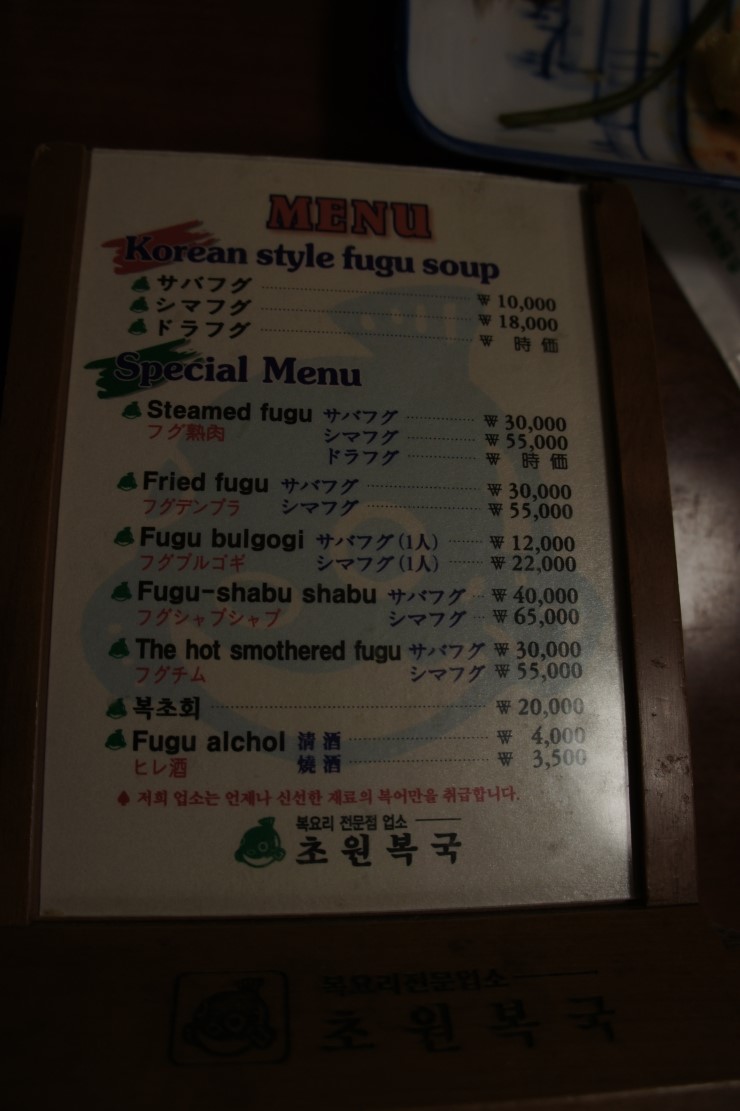 MENU
Korean style fugu soup
サバフグ ₩ 10,000
シマフグ ₩ 18,000
ドラフグ ₩ 時価
Special Menu
Steamed fugu サバフグ ₩ 30,000
フグ熟肉 シマフグ ₩ 55,000
ドラフグ ₩ 時価
Fried fugu サバフグ ₩ 30,000
フグデンプラ シマフグ ₩ 55,000
Fugu bulgogi サバフグ(1人) ₩ 12,000
フグプルゴギ シマフグ(1人) ₩ 22,000
Fugu-shabu shabu サバフグ ₩ 40,000
フグシャブシャブ シマフグ ₩ 65,000
The hot smothered fugu サバフグ ₩ 30,000
フグチム シマフグ ₩ 55,000
복초회 ₩ 20,000
Fugu alchol 清酒 ₩ 4,000
ヒレ酒 燒酒 ₩ 3,500
저희 업소는 언제나 신선한 재료의 복어만을 취급합니다.
복요리 전문점 업소
초원복국
복요리전문업소
초원복국